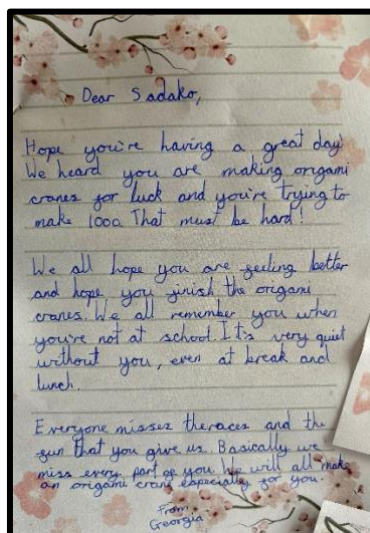 Dear Sadako,
Hope you're having a great day!
We heard you are making origami
cranes for luck and you're trying to
make 1000. That must be hard!
We all hope you are feeling better
and hope you finish the origami
cranes. We all remember you when
you're not at school. It's very quiet
without you, even at break and
lunch.
Everyone misses the races and the
fun that you give us. Basically we
miss every part of you. We will all make
an origami crane especially for you.
From
Georgia